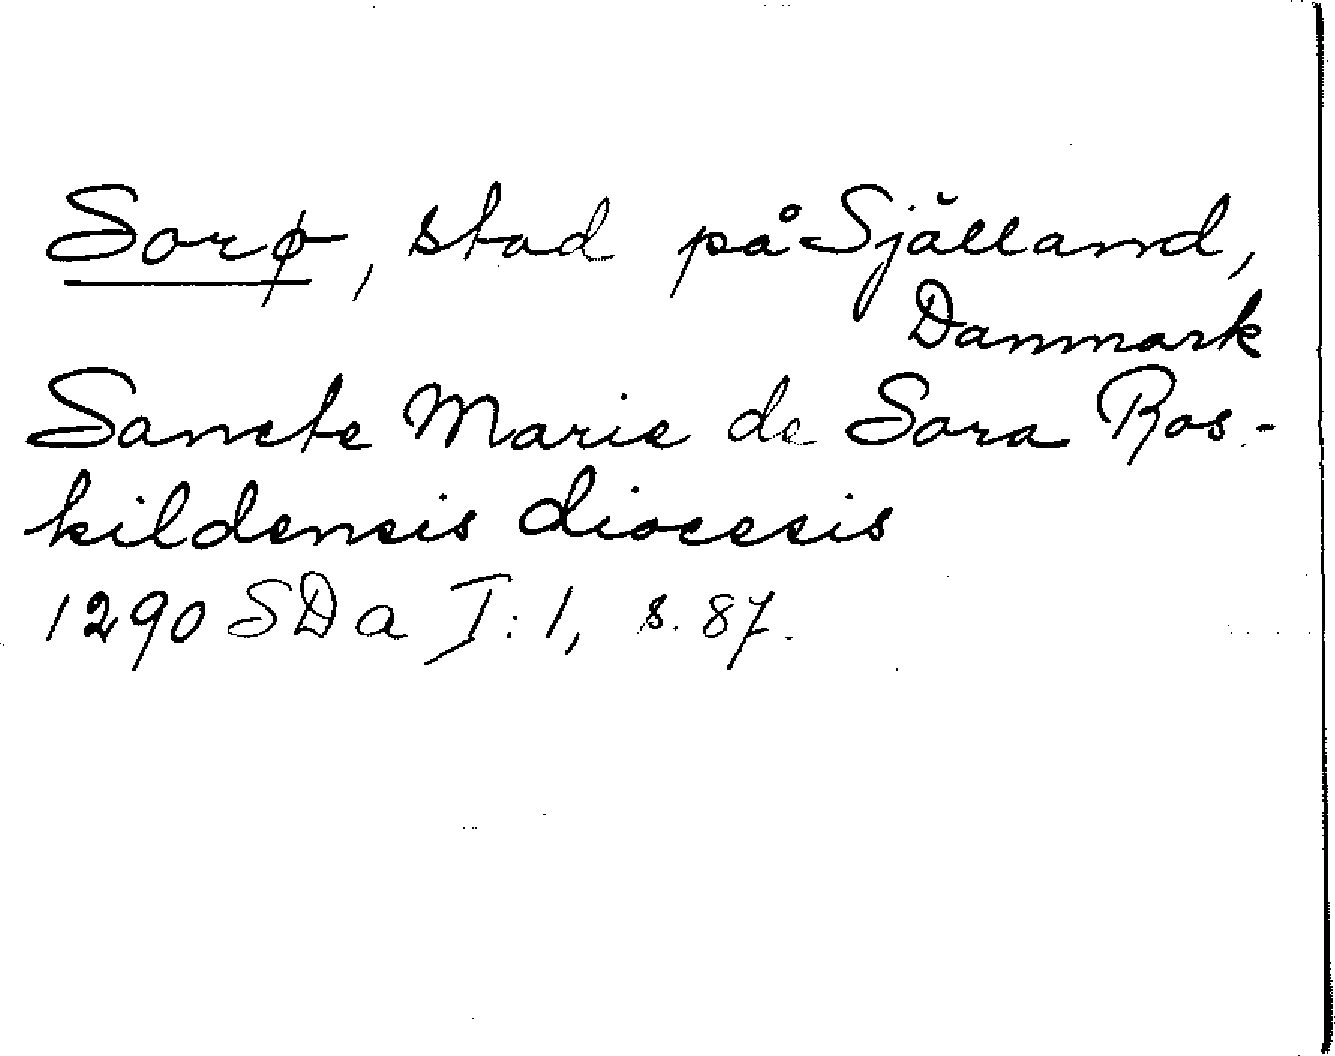 Sorø, stad på Själland,
Danmark
Sancte Marie de Sora Ros-
kildensis diocesis
1290 SDa I:1, s. 87.